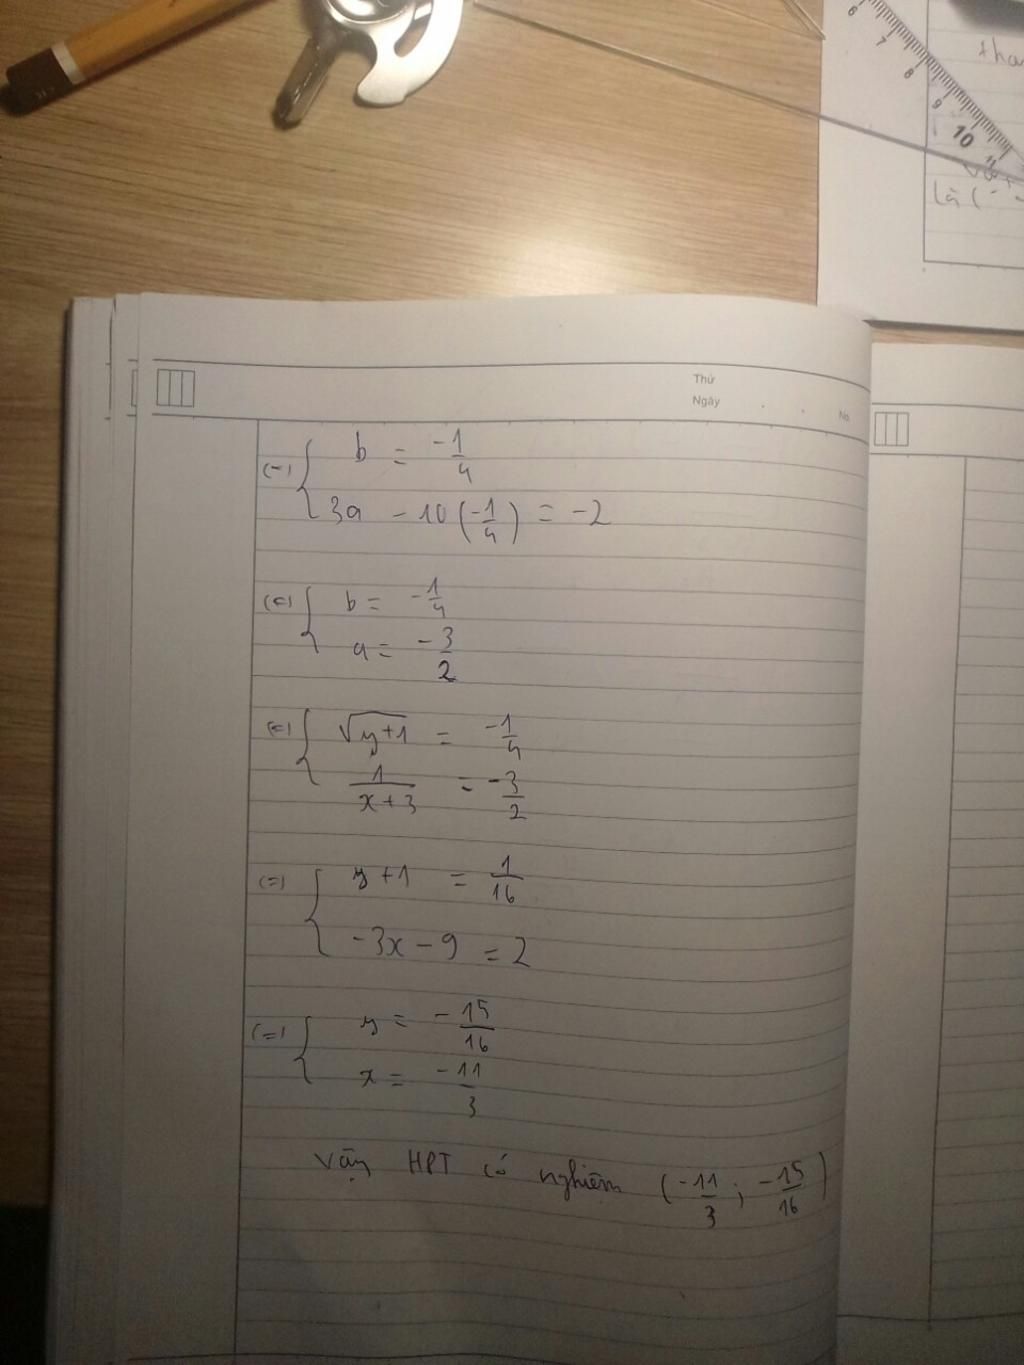 6 7 8 9 10 11
tha
là (
Thứ
Ngày
No.
(=) { b = -1/4
3a - 10(-1/4) = -2
(=) { b = -1/4
a = -3/2
(=) { √(y+1) = -1/4
1/(x+3) = -3/2
(=) { y+1 = 1/16
-3x - 9 = 2
(=) { y = -15/16
x = -11/3
Vậy HPT có nghiệm (-11/3 ; -15/16)